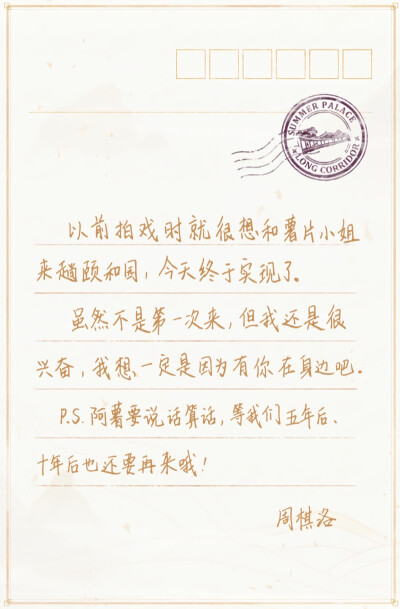 SUMMER PALACE
LONG CORRIDOR
以前拍戏时就很想和薯片小姐
来趟颐和园，今天终于实现了。
虽然不是第一次来，但我还是很
兴奋，我想，一定是因为有你在身边吧。
P.S.阿薯要说话算话，等我们五年后、
十年后也还要再来哦！
周棋洛